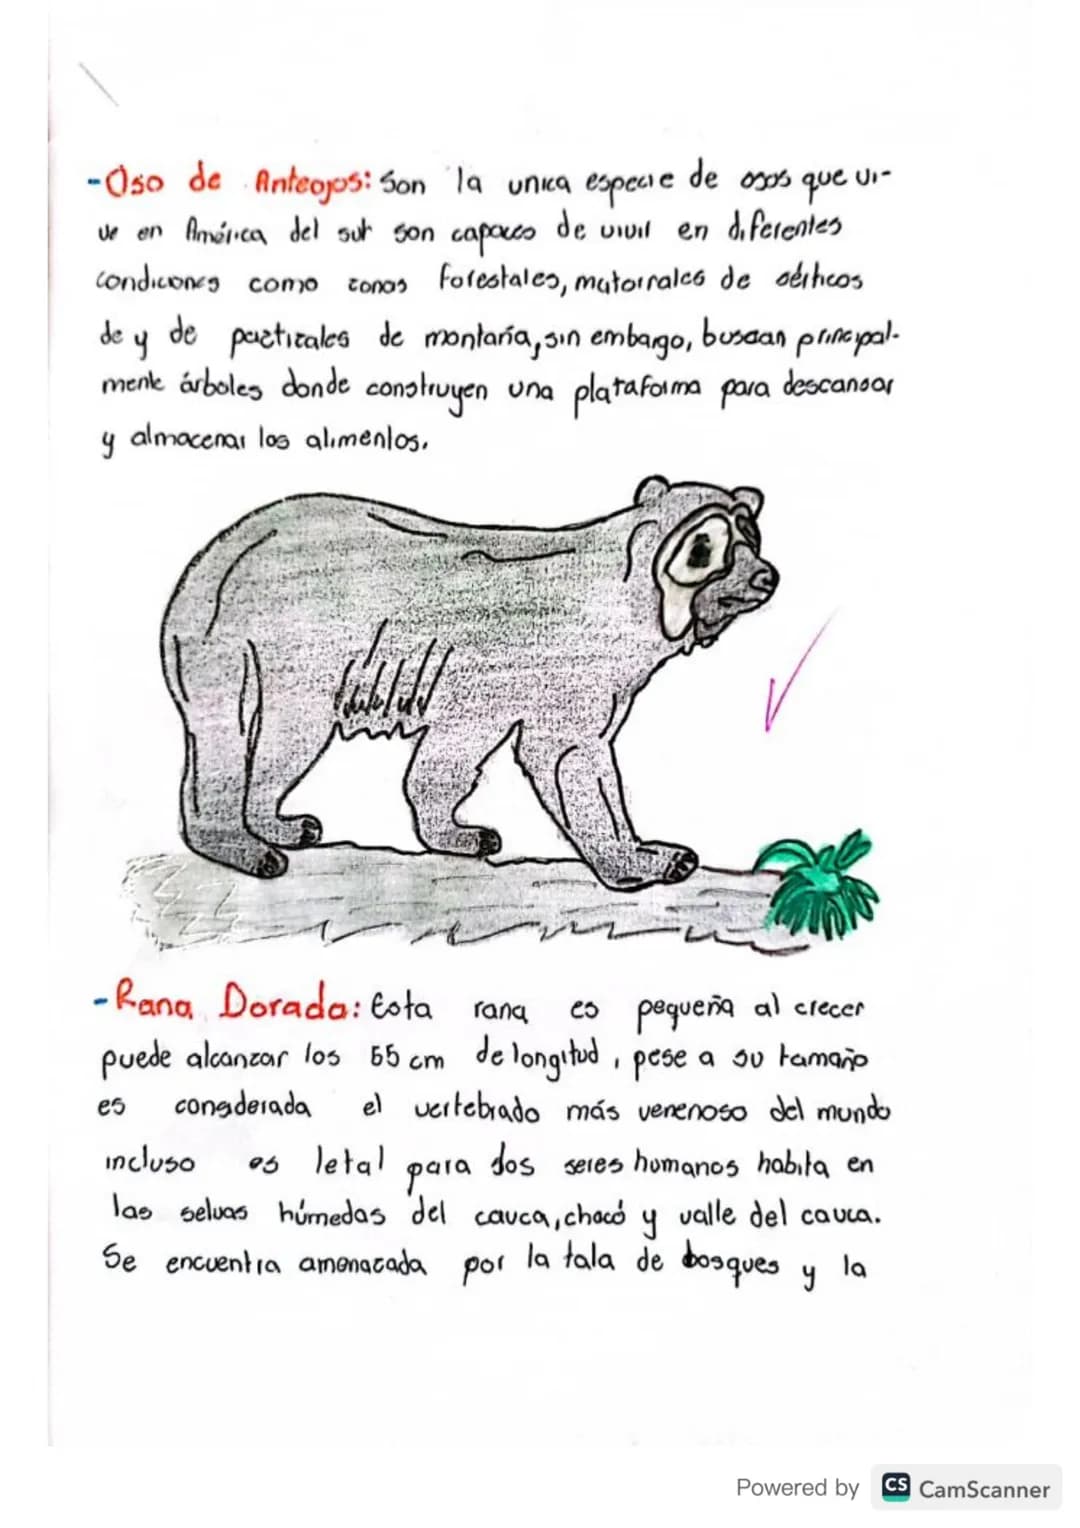 -Oso de Anteojos: Son la unica especie de osos que vi-
ve en América del sur son capaces de vivir en diferentes
condiciones como zonas forestales, matorrales desérticos
de y de pastizales de montaña, sin embargo, buscan principal-
mente árboles donde construyen una plataforma para descansar
y almacenar los alimentos.
-Rana Dorada: Esta rana es pequeña al crecer
puede alcanzar los 55 cm de longitud, pese a su tamaño
es considerada el vertebrado más venenoso del mundo
incluso es letal para dos seres humanos habita en
las selvas húmedas del cauca, chocó y valle del cauca.
Se encuentra amenazada por la tala de bosques y la
Powered by CS CamScanner